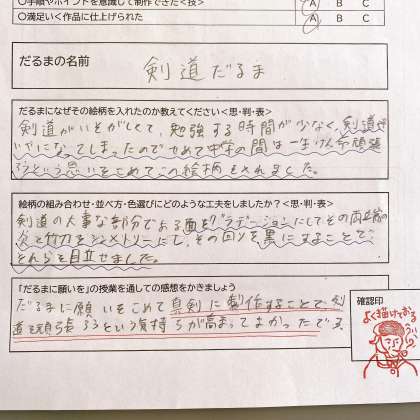 ○手順やポイントを意識して制作できた<技> A B C
○満足いく作品に仕上げられた A B C
だるまの名前
剣道だるま
だるまになぜその絵柄を入れたのか教えてください<思・判・表>
剣道がいそがしくて、勉強する時間が少なく、剣道が
いやになってしまったのでせめて中学の間は一生けん命頑張
ろうという思いをこめてこの絵柄をいれました。
絵柄の組み合わせ・並べ方・色選びにどのような工夫をしましたか?<思・判・表>
剣道の大事な部分である面をグラデーションにしてその両
と竹刀をシンメトリーにし、その回りを黒にすることで、
それらを目立せました。
「だるまに願いを」の授業を通しての感想をかきましょう
だるまに願いをこめて真剣に製作することで、剣
道を頑張ろうという気持ちが高まってよかったです。
確認印
よく描けてるぅ